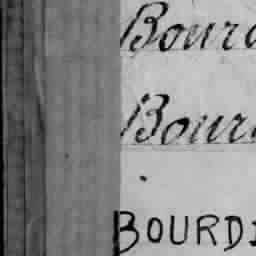 Bourd
Bour
BOURDI